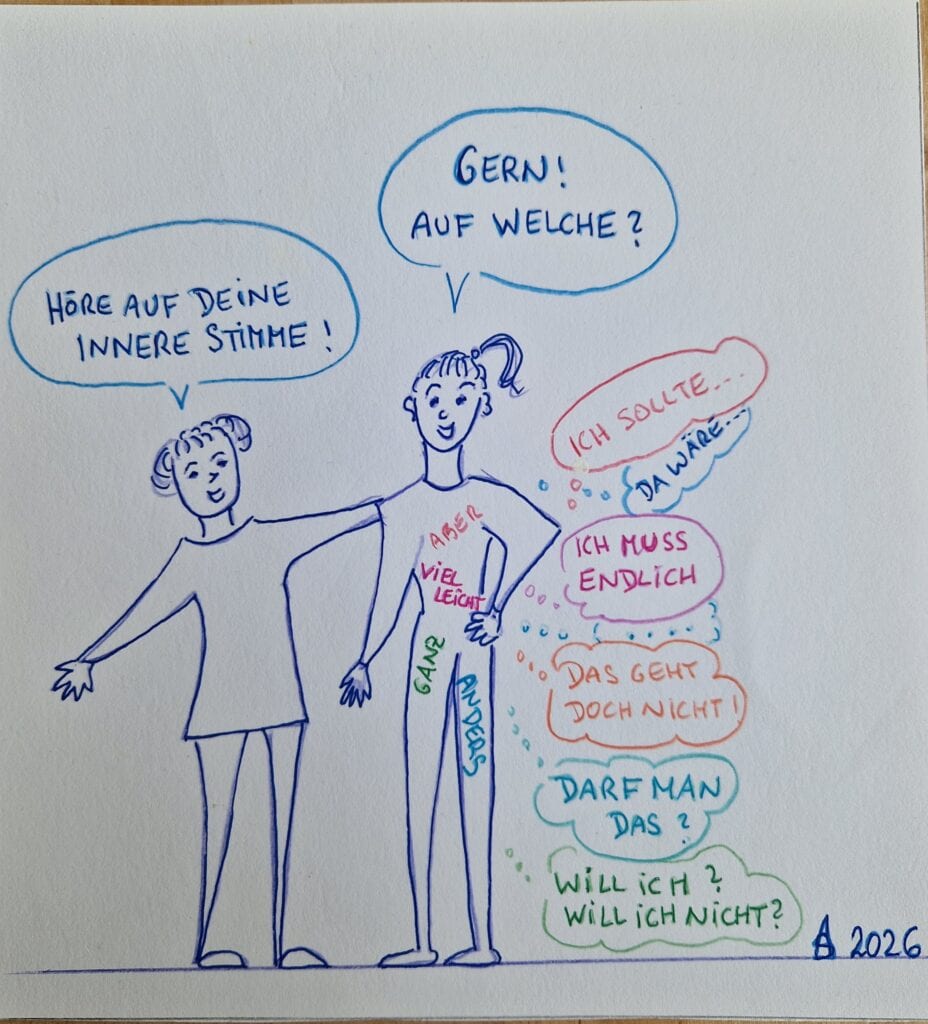 GERN!
AUF WELCHE?
HÖRE AUF DEINE
INNERE STIMME!
ICH SOLLTE...
DA WÄRE...
ABER
VIEL
LEICHT
GANZ
ANDERS
ICH MUSS
ENDLICH
DAS GEHT
DOCH NICHT!
DARF MAN
DAS?
WILL ICH?
WILL ICH NICHT?
2026